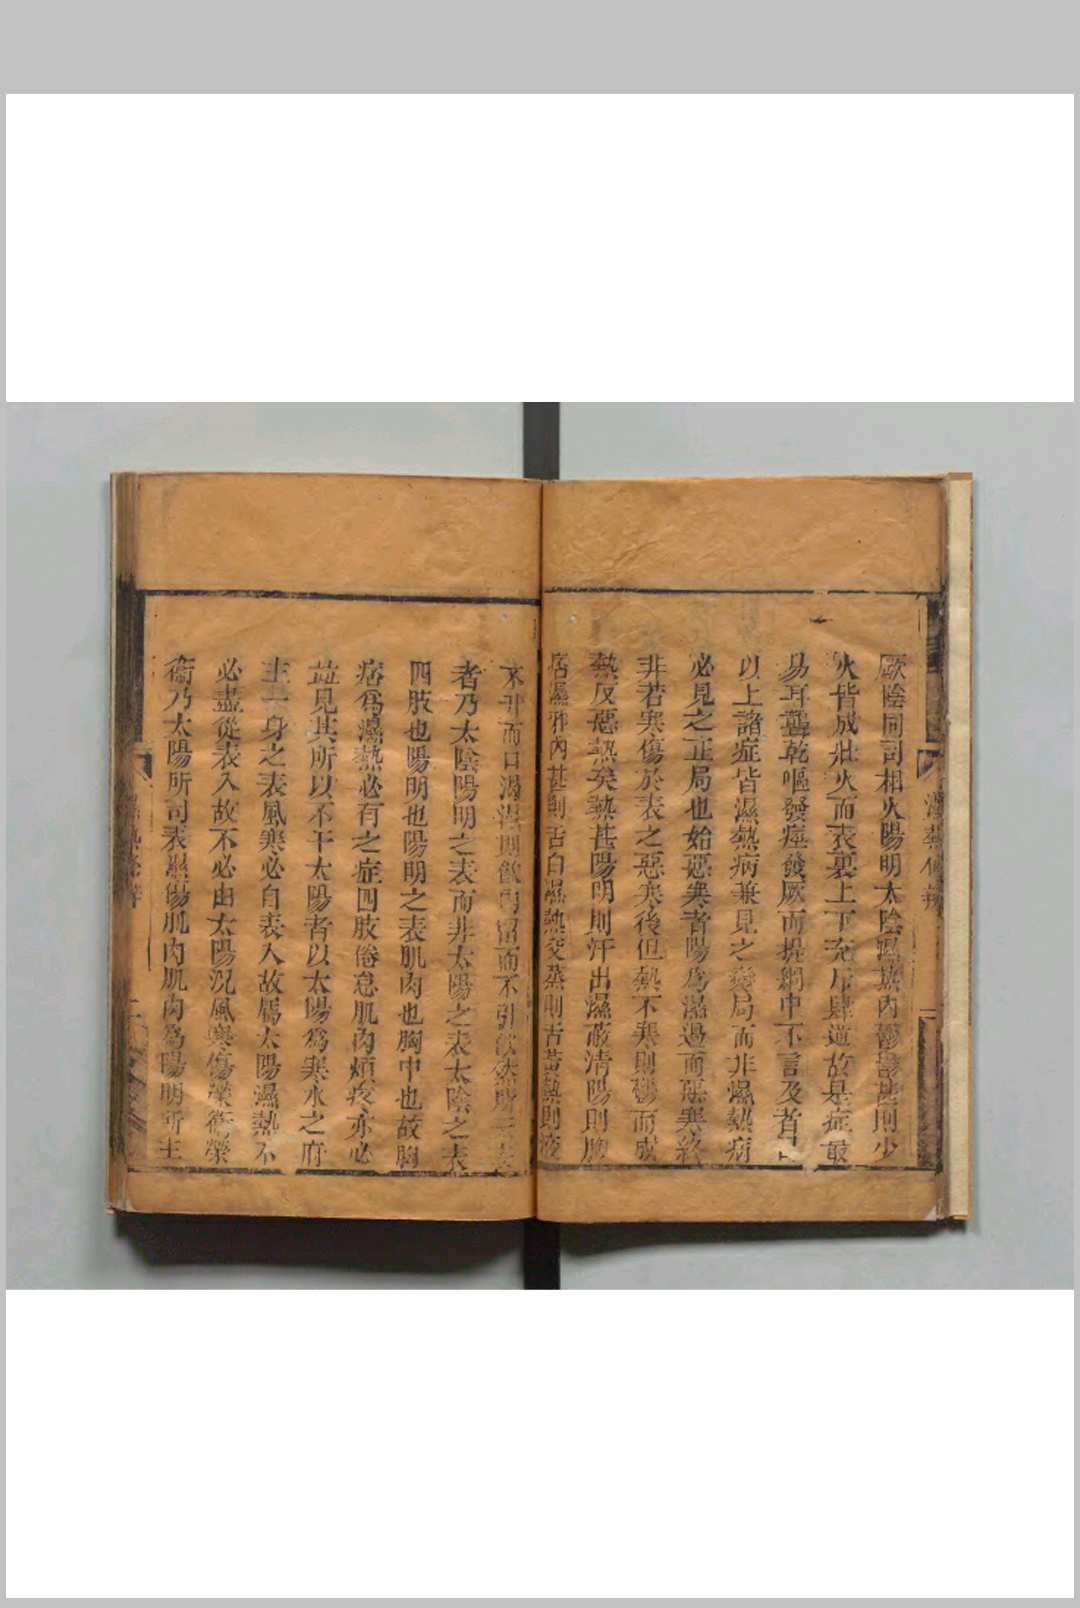 厥陰同司相火陽明太陰濕熱內鬱鬱甚則少
火皆成壯火而表裏上下充斥肆逆故是症最
易耳聾乾嘔發痙發厥而提綱中不言及者
以上諸症皆濕熱病兼見之變局而非濕熱病
必見之正局也始惡寒者陽為濕遏而惡寒終
非若寒傷於表之惡寒後但熱不寒則鬱而成
熱反惡熱矣熱甚陽明則汗出濕蔽清陽則胸
痞濕邪內甚則舌白濕熱交蒸則舌黃熱則液
不升而口渴濕則飲內留而不引飲然所云表
者乃太陰陽明之表而非太陽之表太陰之表
四肢也陽明也陽明之表肌肉也胸中也故胸
痞為濕熱必有之症四肢倦怠肌肉煩疼亦必
並見其所以不干太陽者以太陽為寒水之府
主一身之表風寒必自表入故屬太陽濕熱不
必盡從表入故不必由太陽況風寒傷榮衛榮
衛乃太陽所司表濕傷肌肉肌肉為陽明所主